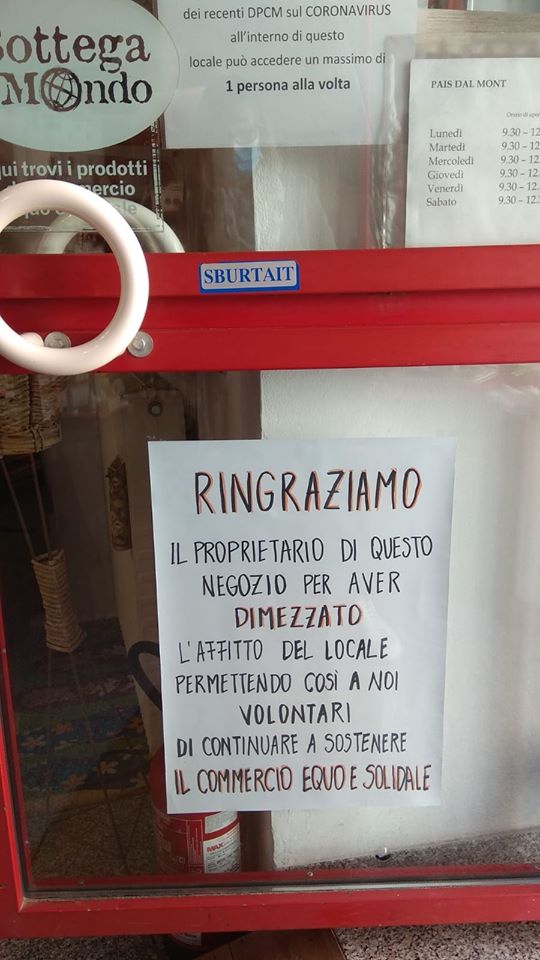 Bottega
Mondo
qui trovi i prodotti
commercio
dei recenti DPCM sul CORONAVIRUS
all'interno di questo
locale può accedere un massimo di
1 persona alla volta
PAIS DAL MONT
Lunedì 9.30 – 12.
Martedì 9.30 – 12.
Mercoledì 9.30 – 12.
Giovedì 9.30 – 12.
Venerdì 9.30 – 12.
Sabato 9.30 – 12.
SBURTAIT
RINGRAZIAMO
IL PROPRIETARIO DI QUESTO
NEGOZIO PER AVER
DIMEZZATO
L'AFFITTO DEL LOCALE
PERMETTENDO COSÌ A NOI
VOLONTARI
DI CONTINUARE A SOSTENERE
IL COMMERCIO EQUO E SOLIDALE
MAX